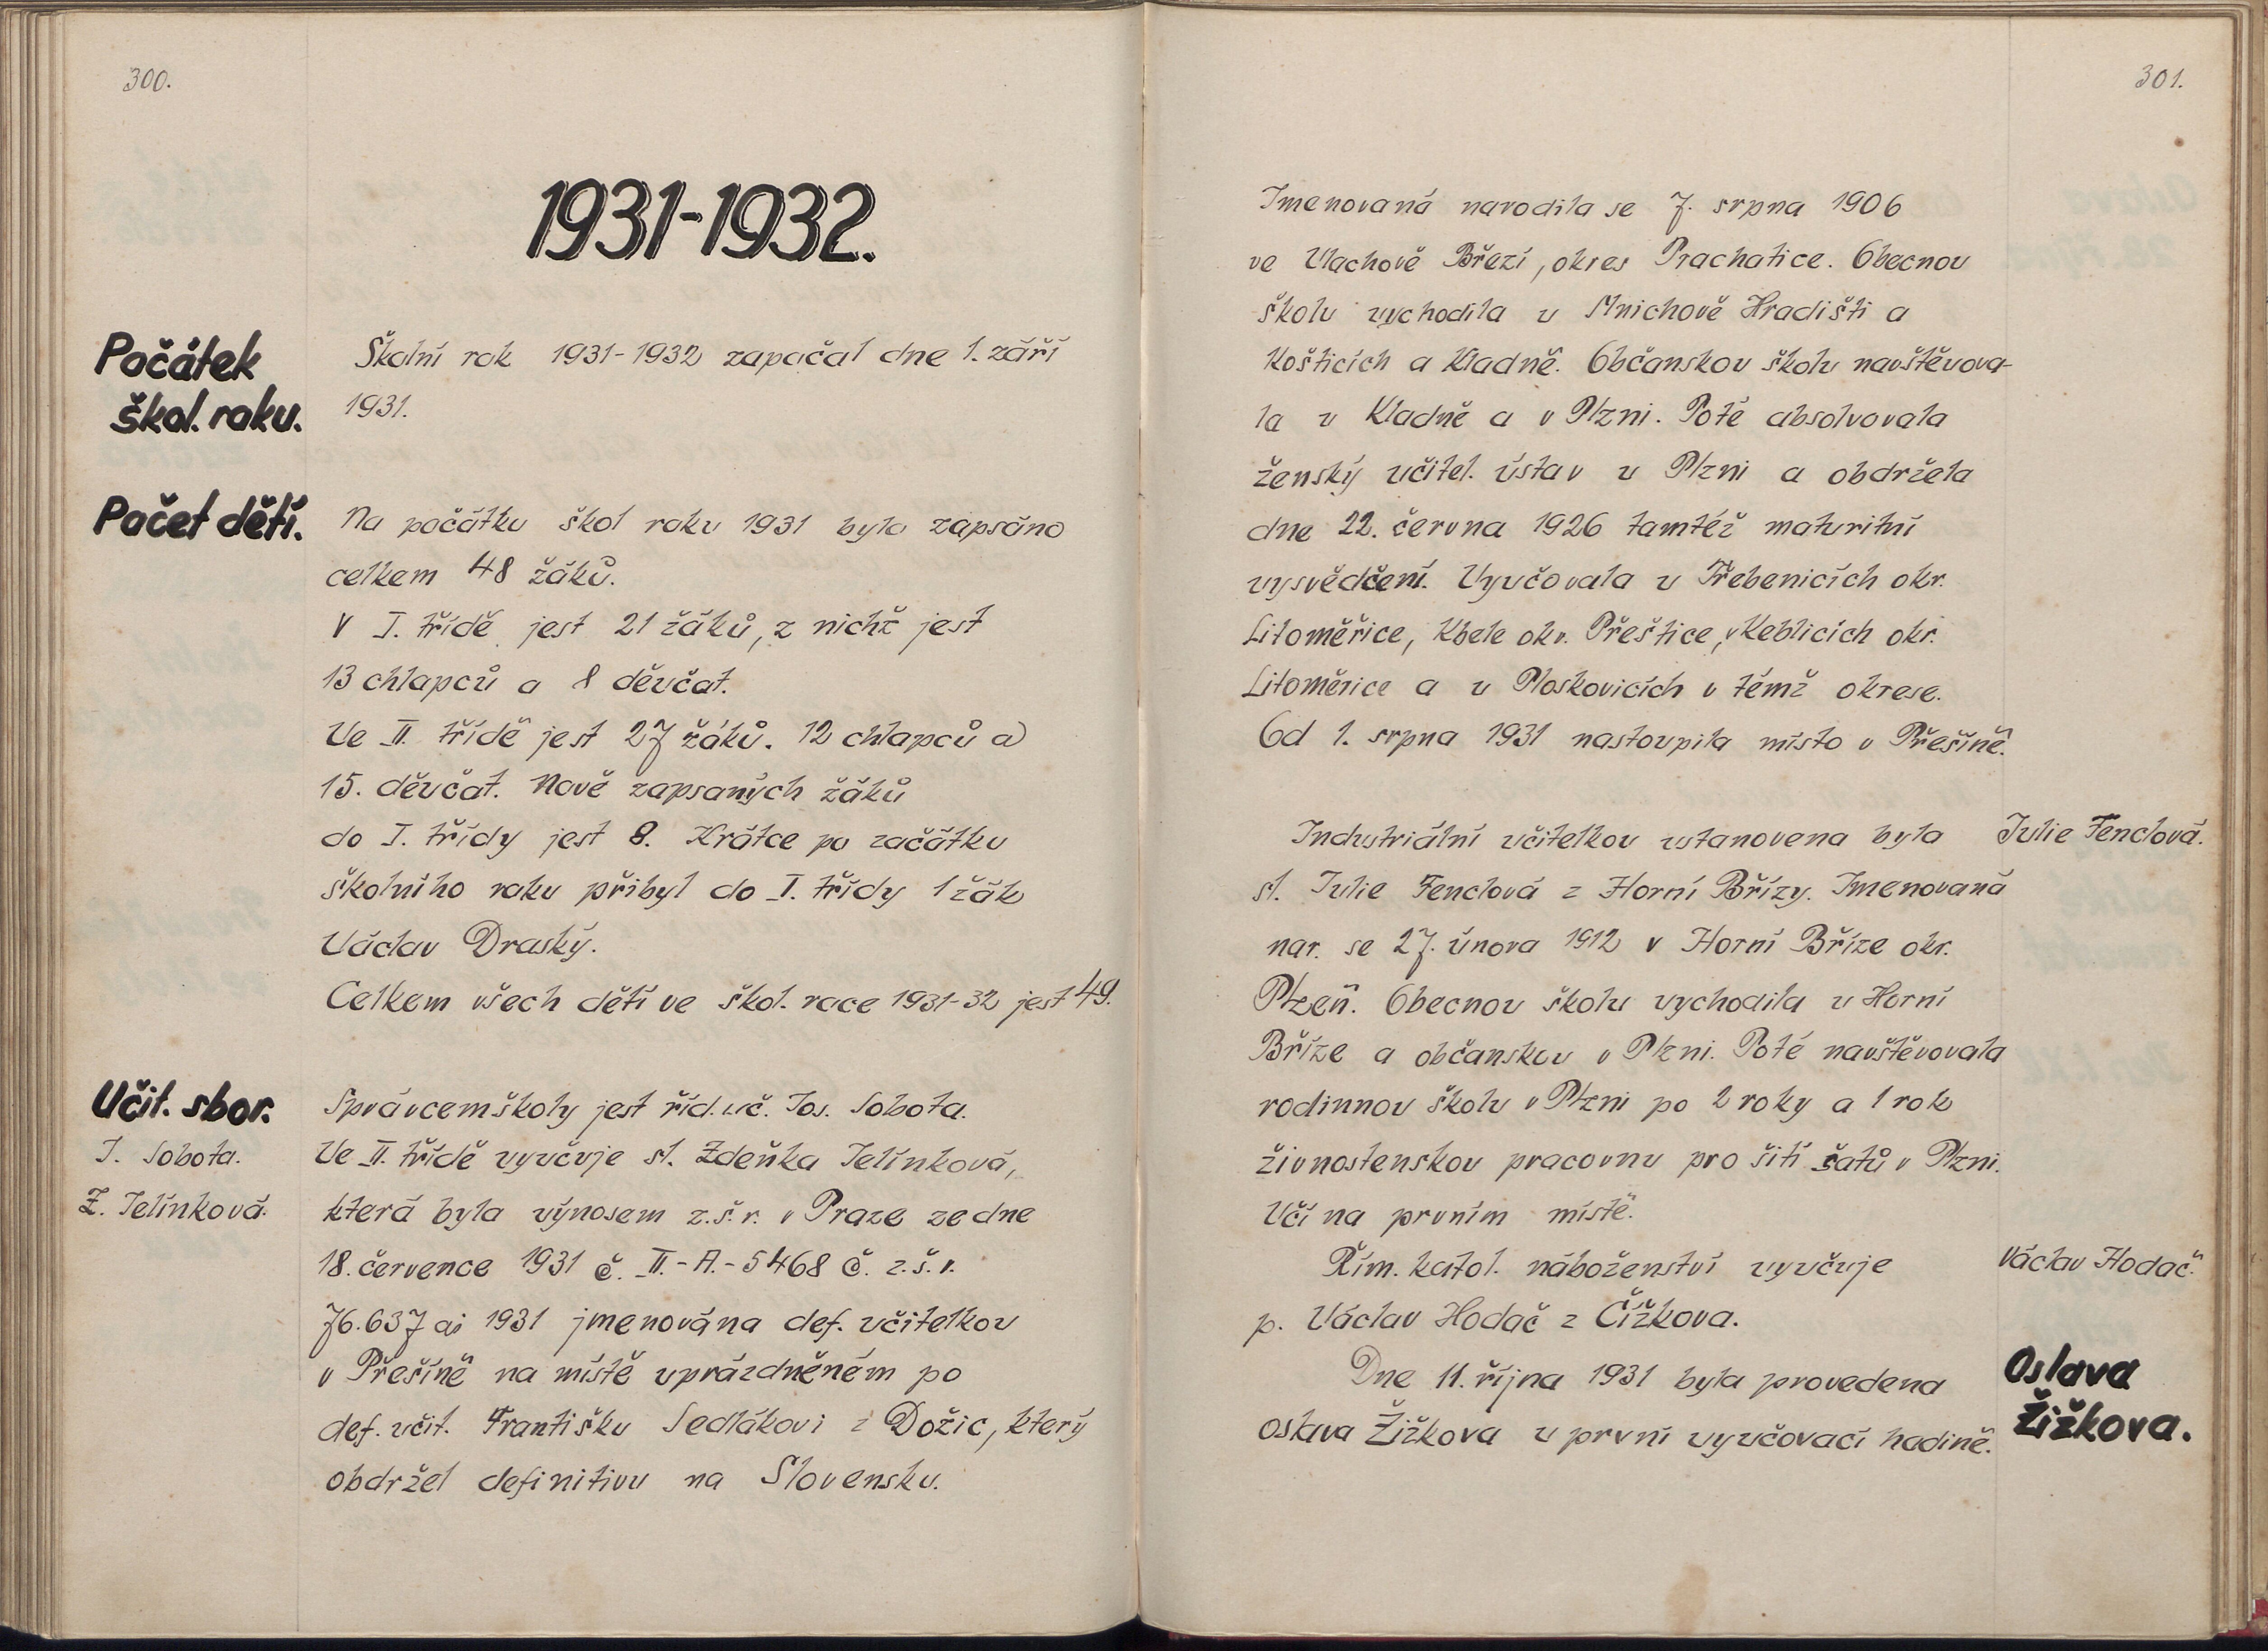 300.
1931-1932.
Počátek
škol. roku.
Školní rok 1931-1932 započal dne 1. září
1931.
Počet dětí.
Na počátku škol roku 1931 bylo zapsáno
celkem 48 žáků.
V I. třídě jest 21 žáků, z nichž jest
13 chlapců a 8 děvčat.
Ve II. třídě jest 27 žáků. 12 chlapců a
15. děvčat. Nově zapsaných žáků
do I. třídy jest 8. Krátce po začátku
školního roku přibyl do I. třídy 1 žák
Václav Draský.
Celkem všech dětí ve škol. roce 1931-32 jest 49.
Učit. sbor.
J. Sobota.
Z. Jelínková.
Správcem školy jest říd. uč. Jos. Sobota.
Ve II. třídě vyučuje sl. Zdeňka Jelínková,
která byla výnosem z.š.r. v Praze ze dne
18. července 1931 č. II.-A.-5468 č. z.š.r.
76.637 ai 1931 jmenována def. učitelkou
v Přešíně na místě uprázdněném po
def. učit. Františku Sedlákovi z Dožic, který
obdržel definitivu na Slovensku.
301.
Jmenovaná narodila se 7. srpna 1906
ve Vlachově Březí, okres Prachatice. Obecnou
školu vychodila v Mnichově Hradišti a
Košticích a Kladně. Občanskou školu navštěvova-
la v Kladně a v Plzni. Poté absolvovala
ženský učitel. ústav v Plzni a obdržela
dne 22. června 1926 tamtéž maturitní
vysvědčení. Vyučovala v Třebenicích okr.
Litoměřice, Kbele okr. Přeštice, v Keblicích okr.
Litoměřice a v Ploskovicích v témž okrese.
Od 1. srpna 1931 nastoupila místo v Přešíně.
Industriální učitelkou ustanovena byla
sl. Julie Fenclová z Horní Břízy. Jmenovaná
nar. se 27. února 1912 v Horní Bříze okr.
Plzeň. Obecnou školu vychodila v Horní
Bříze a občanskou v Plzni. Poté navštěvovala
rodinnou školu v Plzni po 2 roky a 1 rok
živnostenskou pracovnu pro šití šatů v Plzni.
Učí na prvním místě.
Julie Fenclová.
Řím. katol. náboženství vyučuje
p. Václav Hodač z Čížkova.
Václav Hodač.
Dne 11. října 1931 byla provedena
oslava Žižkova v první vyučovací hodině.
Oslava
Žižkova.